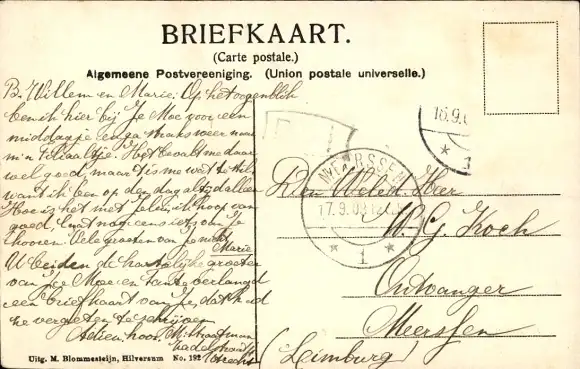 BRIEFKAART.
(Carte postale.)
Algemeene Postvereeniging. (Union postale universelle.)
B. Willem en Marie. Op het oogenblik
ben ik hier bij Je Moe voor een
middagje en ga straks weer naar
m'n Filiaaltje. Het bevalt me daar
wel goed, maar 't is me wat te stil
want ik ben op den dag altijd alleen
Hoe is het met Jelui, ik hoop van
goed, laat nog eens iets van Je
hooren. Vele groeten van je nicht
Marie
U beiden de hartelijke groeten
van je Moe en Tante verlangd
een briefkaart van Je, dat had
je vergeten te schrijven
Adieu hoor. M. Straatman
Utrecht
16.9.0
* 1
MEERSSEN
17.9.09
* 1 *
Den Weled. Heer
W. G. Koch
Ontvanger
Meerssen
(Leimburg)
Uitg. M. Blommesteijn, Hilversum No. 192